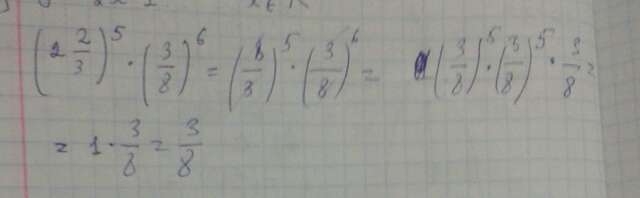 (2 2/3)^5 · (3/8)^6 = (8/3)^5 · (3/8)^6 = (3/8)^5 · (3/8)^5 · 3/8 =
= 1 · 3/8 = 3/8